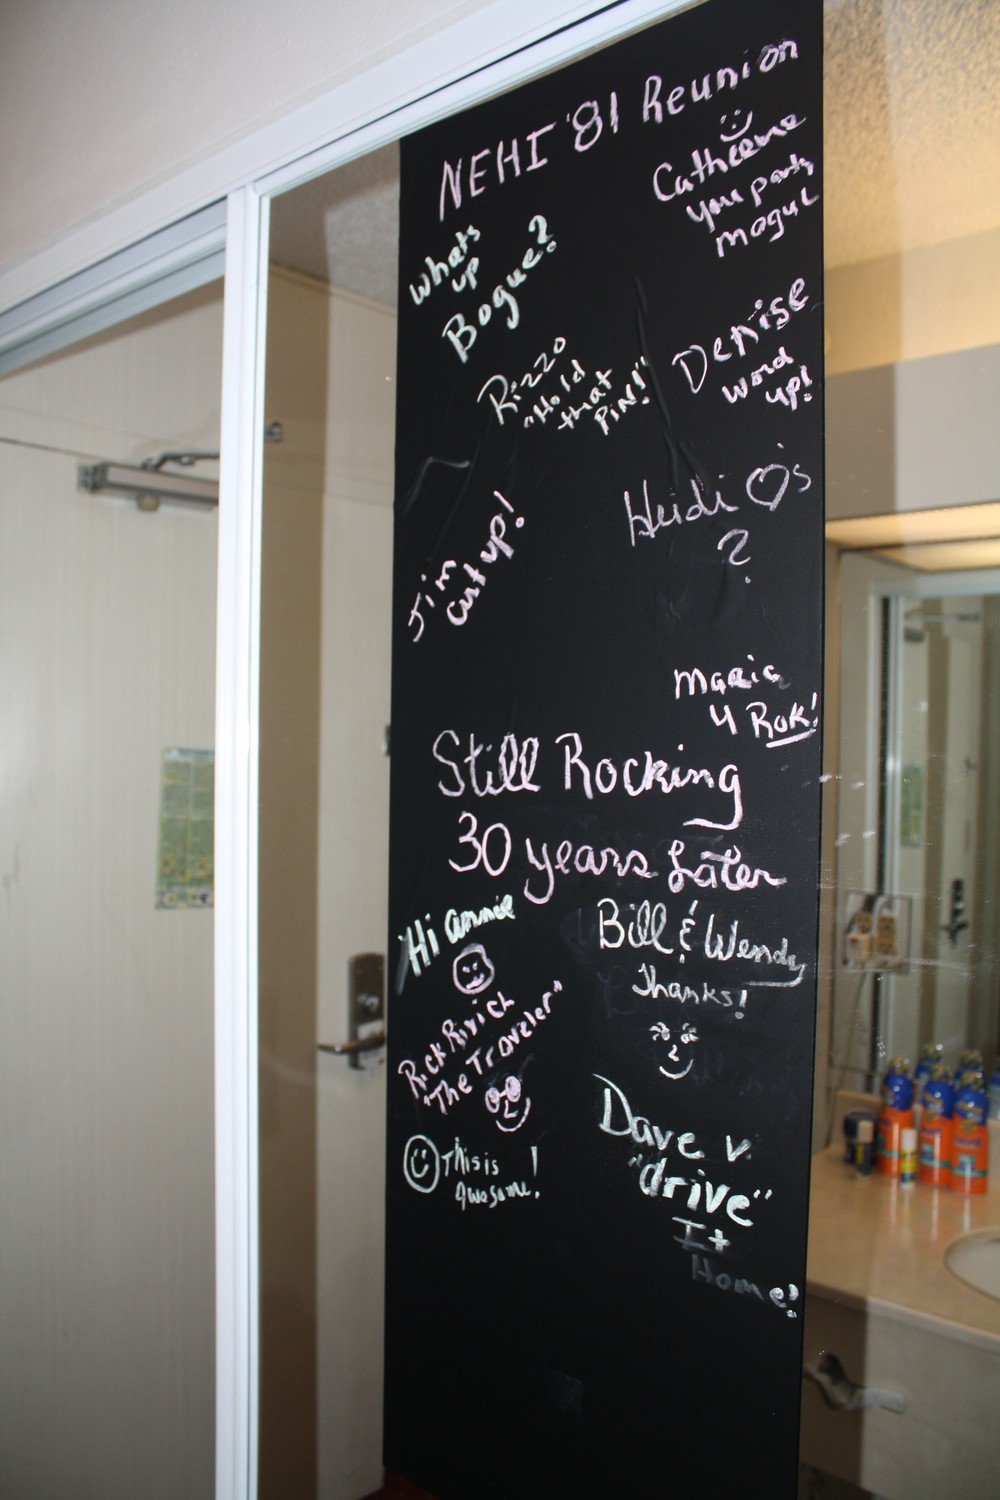 NEHI '81 Reunion
Catherine
you party
mogul
Whats
up
Bogue?
Rizzo
"Hold
that
Pin!"
Denise
word
up!
Heidi ♡'s
?
Jim
cut up!
Maria
4 Rok!
Still Rocking
30 years Later
Hi Annie
Bill & Wendy
Thanks!
Rick Rivich
"The Traveler"
This is
Awesome!
Dave V.
"drive"
It
Home!